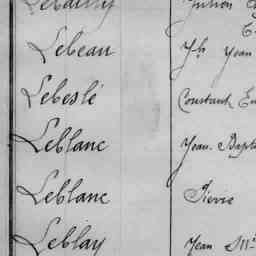 Lebeau Jh Jean
Lebeslé Constant
Leblanc Jean. Bapt
Leblanc Pierre
Leblay Jean M